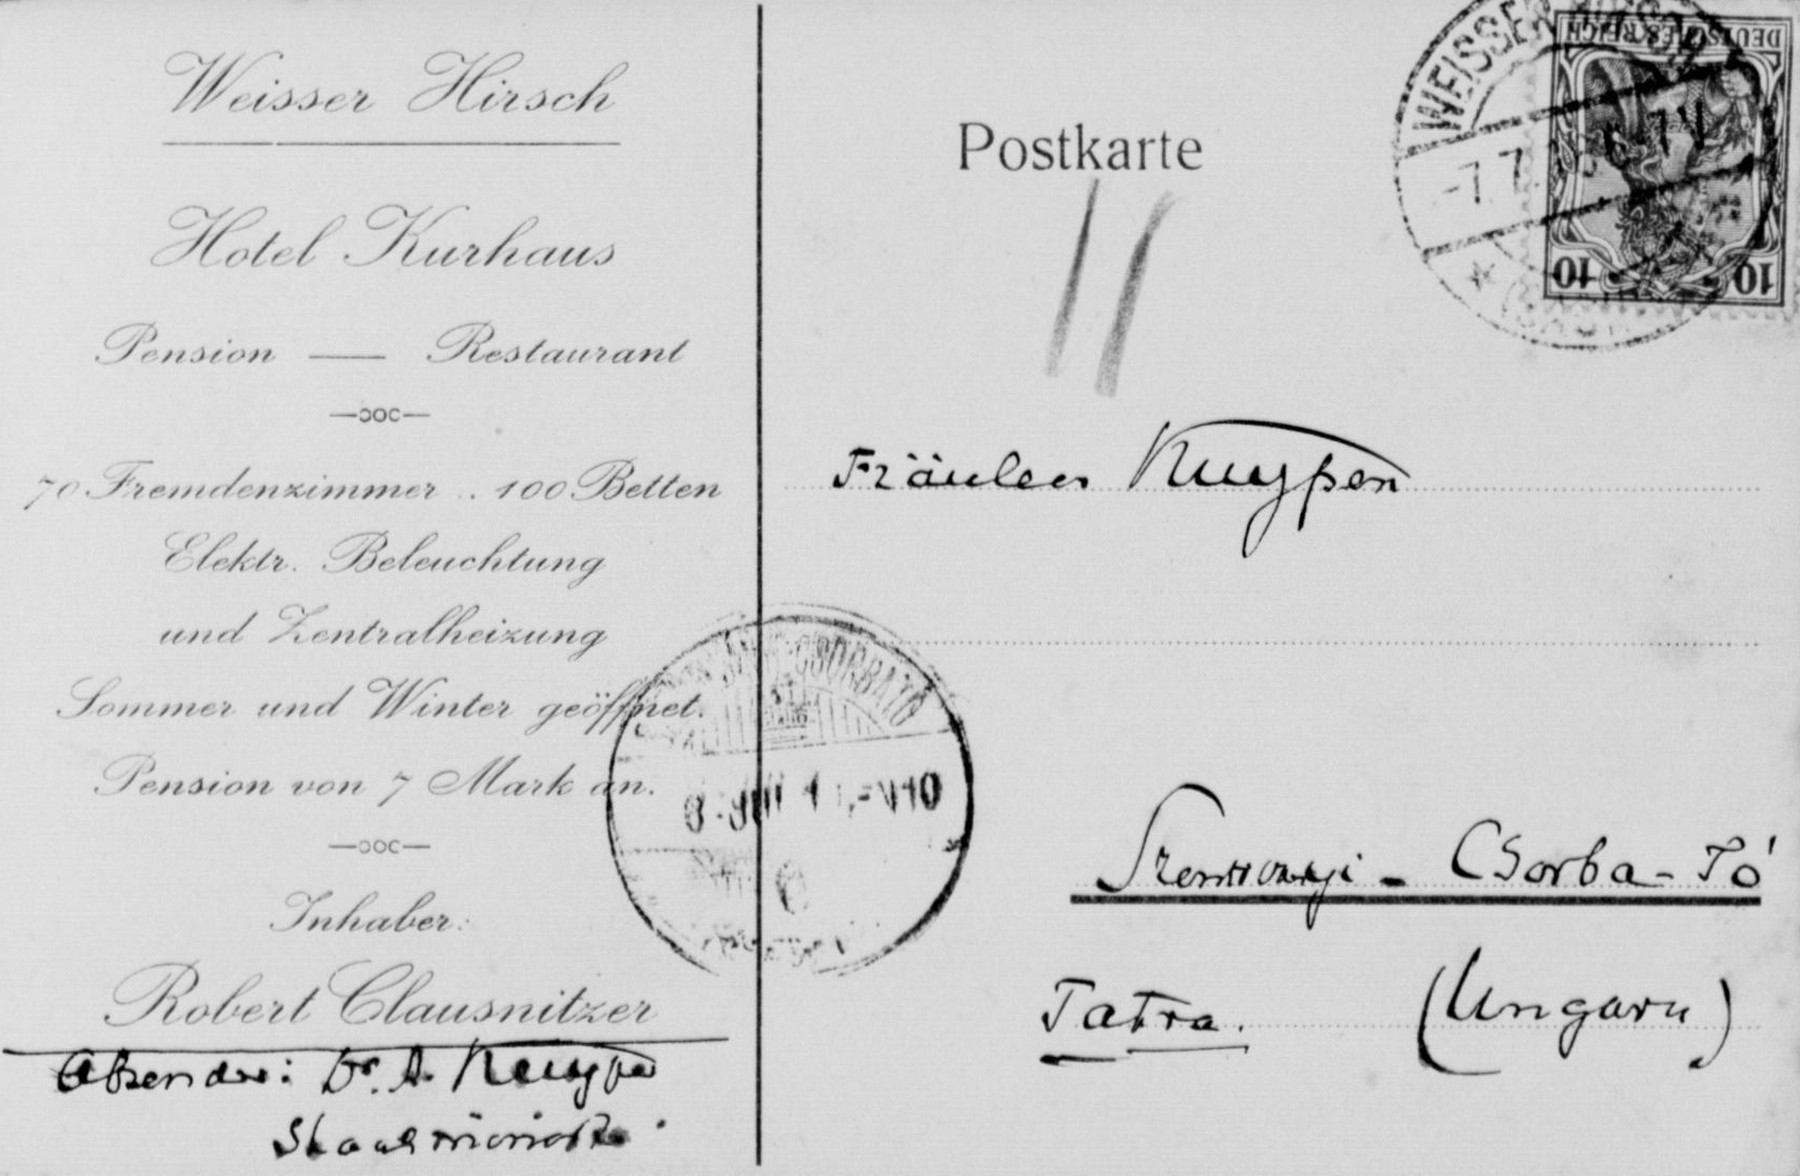 Weisser Hirsch
Hotel Kurhaus
Pension — Restaurant
70 Fremdenzimmer .. 100 Betten
Elektr. Beleuchtung
und Zentralheizung
Sommer und Winter geöffnet.
Pension von 7 Mark an.
Inhaber:
Robert Clausnitzer
Absender: Dr. A. Kuyper
Staatsminister.
Postkarte
WEISSER HIRSCH
-7.7. 6-7V
DEUTSCHES REICH
10 10
Fräulein Kuyper
CSORBATÓ
Csorba-Tó
Tatra.
(Ungarn)